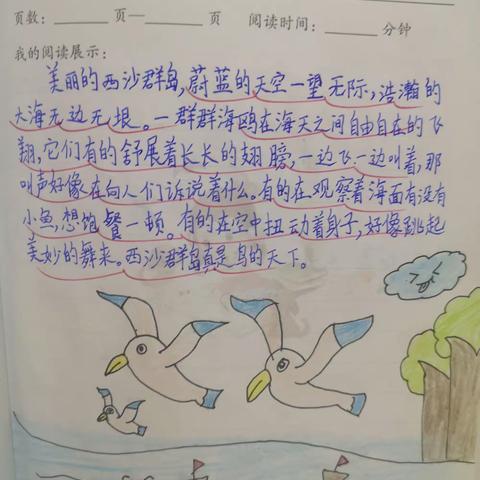 页数：______ 页— ______ 页　阅读时间：______ 分钟
我的阅读展示：
美丽的西沙群岛，蔚蓝的天空一望无际，浩瀚的
大海无边无垠。一群群海鸥在海天之间自由自在的飞
翔，它们有的舒展着长长的翅膀，一边飞一边叫着，那
叫声好像在向人们诉说着什么。有的在观察着海面有没有
小鱼，想饱餐一顿。有的在空中扭动着身子，好像跳起
美妙的舞来。西沙群岛真是鸟的天下。